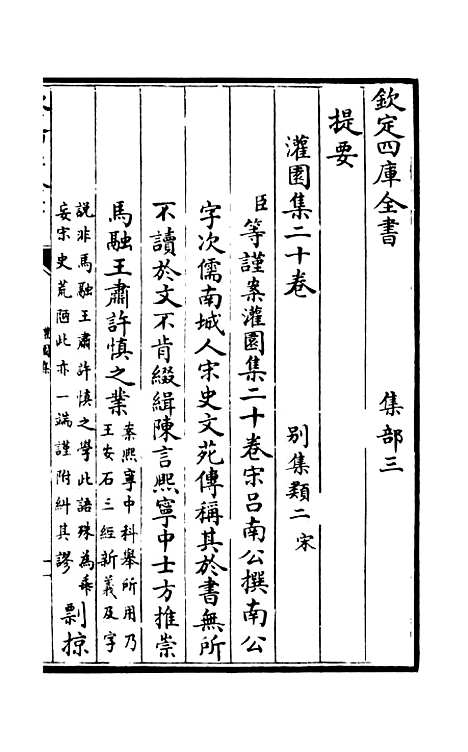 欽定四庫全書　集部三
提要
灌園集二十卷　別集類二 宋
臣等謹案灌園集二十卷宋呂南公撰南公
字次儒南城人宋史文苑傳稱其於書無所
不讀於文不肯綴緝陳言熙寧中士方推崇
馬融王肅許慎之業
案熙寧中科舉所用乃
王安石三經新義及字
說非馬融王肅許慎之學此語殊為乖
妄宋史荒陋此亦一端謹附糾其謬
剽掠
灌園集